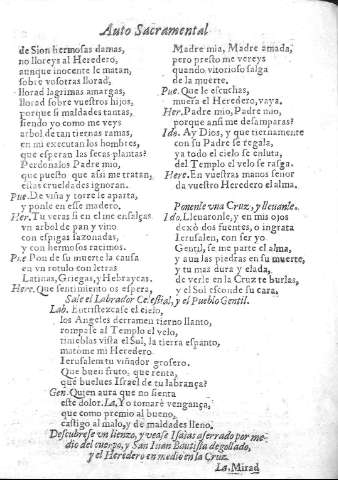 Auto Sacramental
de Sion hermosas damas,
no lloreys al Heredero,
aunque inocente le matan,
sobre vosotras llorad,
llorad lagrimas amargas,
llorad sobre vuestros hijos,
porque si maldades tantas,
siendo yo como me veys
arbol de tan tiernas ramas,
en mi executan los hombres,
que esperan las secas plantas?
Perdonalos Padre mio,
que puesto que assi me tratan,
essas crueldades ignoran.
Pue. De viña y torre le aparta,
y ponle en esse madero.
Her. Tu veras si en el me ensalças
vn arbol de pan y vino
con espigas sazonadas,
y con hermosos racimos.
Pue. Pon de su muerte la causa
en vn rotulo con letras
Latinas, Griegas, y Hebraycas.
Here. Que sentimiento os espera,
Madre mia, Madre amada,
pero presto me vereys
quando vitorioso salga
de la muerte.
Pue. Que le escuchas,
muera el Heredero, vaya.
Her. Padre mio, Padre mio,
porque ansi me desamparas?
Ido. Ay Dios, y que tiernamente
con su Padre se regala,
ya todo el cielo se enluta,
del Templo el velo se rasga.
Here. En vuestras manos señor
da vuestro Heredero el alma.
Ponenle vna Cruz, y lleuanle.
Ido. Lleuaronle, y en mis ojos
dexò dos fuentes, o ingrata
Ierusalen, con ser yo
Gentil, se me parte el alma,
y aun las piedras en su muerte,
y tu mas dura y elada,
de verle en la Cruz te burlas,
y el Sol esconde su cara.
Sale el Labrador Celestial, y el Pueblo Gentil.
Lab. Entristezcase el cielo,
los Angeles derramen tierno llanto,
rompase al Templo el velo,
tinieblas vista el Sol, la tierra espanto,
matome mi Heredero
Ierusalem tu viñador grosero.
Que buen fruto, que renta,
que buelues Israel de tu labrança?
Gen. Quien aura que no sienta
este dolor. La. Yo tomarè vengança,
que como premio al bueno,
castigo al malo, y de maldades lleno.
Descubrese vn lienzo, y vease Isaias aserrado por me-
dio del cuerpo, y San Iuan Bautista degollado,
y el Heredero en medio en la Cruz.
La. Mirad